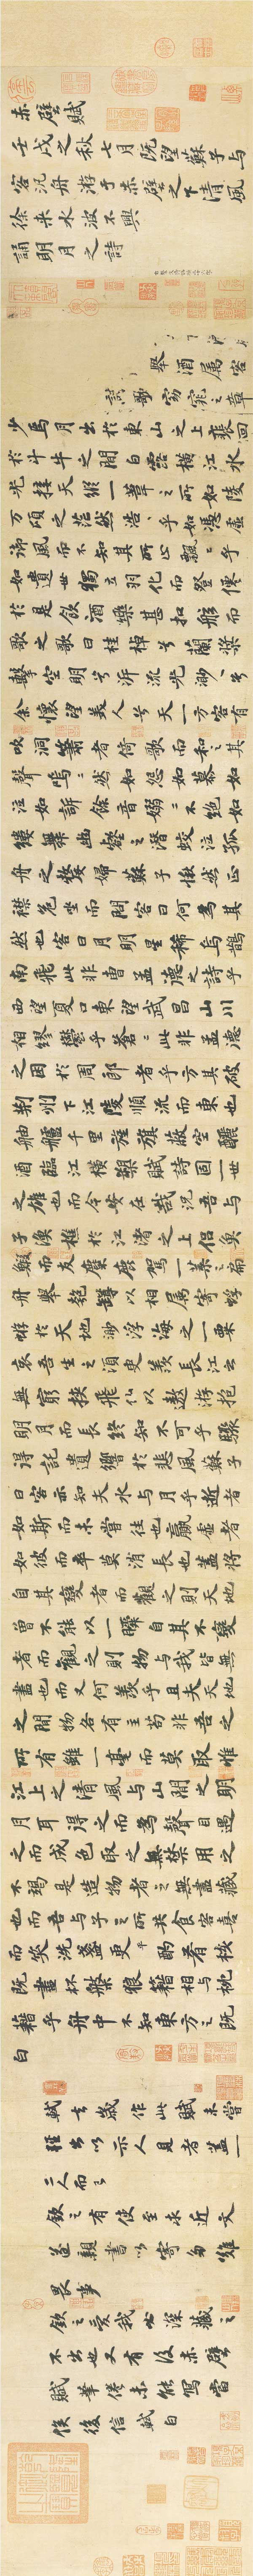 赤壁賦
壬戌之秋七月既望蘇子与
客泛舟游于赤壁之下清風
徐来水波不興
舉酒属客
誦明月之詩
歌窈窕之章
少焉月出於東山之上裴回
於斗牛之間白露橫江水
光接天縱一葦之所如陵
万頃之茫然浩〻乎如馮虚
御風而不知其所止飄〻乎
如遺世獨立羽化而登僊
於是飲酒樂甚扣舷而
歌之歌曰桂棹兮蘭槳
擊空明兮泝流光渺〻兮
余懷望美人兮天一方客有
吹洞簫者倚歌而和之其
聲嗚〻然如怨如慕如
泣如訴餘音嫋〻不絶如
縷舞幽壑之潜蛟泣孤
舟之嫠婦蘇子愀然正
襟危坐而問客曰何為其
然也客曰月明星稀烏鵲
南飛此非曹孟德之詩乎
西望夏口東望武昌山川
相繆鬱乎蒼〻此非孟德
之困於周郎者乎方其破
荆州下江陵順流而東也
舳艫千里旌旗蔽空釃
酒臨江橫槊賦詩固一世
之雄也而今安在哉況吾与
子漁樵於江渚之上侶魚
鰕而友麋鹿駕一葉之扁
舟舉匏罇以相属寄蜉
蝣於天地渺浮海之一粟
哀吾生之須臾羨長江之
無窮挾飛仙以遨游抱
明月而長終知不可乎驟
得託遺響於悲風蘇子
曰客亦知夫水与月乎逝者
如斯而未嘗往也贏虚者
如彼而卒莫消長也蓋將
自其變者而觀之則天地
曾不能以一瞬自其不變
者而觀之則物与我皆無
盡也而又何羨乎且夫天地
之間物各有主苟非吾之
所有雖一毫而莫取惟
江上之清風与山間之明
月耳得之而為聲目遇
之而成色取之無禁用之
不竭是造物者之無盡藏
也而吾与子之所共食客喜
而笑洗盞更酌肴核
既盡杯盤狼籍相与枕
藉乎舟中不知東方之既
白
軾去歲作此賦未嘗
輕出以示人見者蓋一
二人而已
欽之有使至求近文
遂親書以寄多難
畏事
欽之愛我必深藏之
不出也又有後赤壁
賦筆倦未能寫當
俟後信軾白